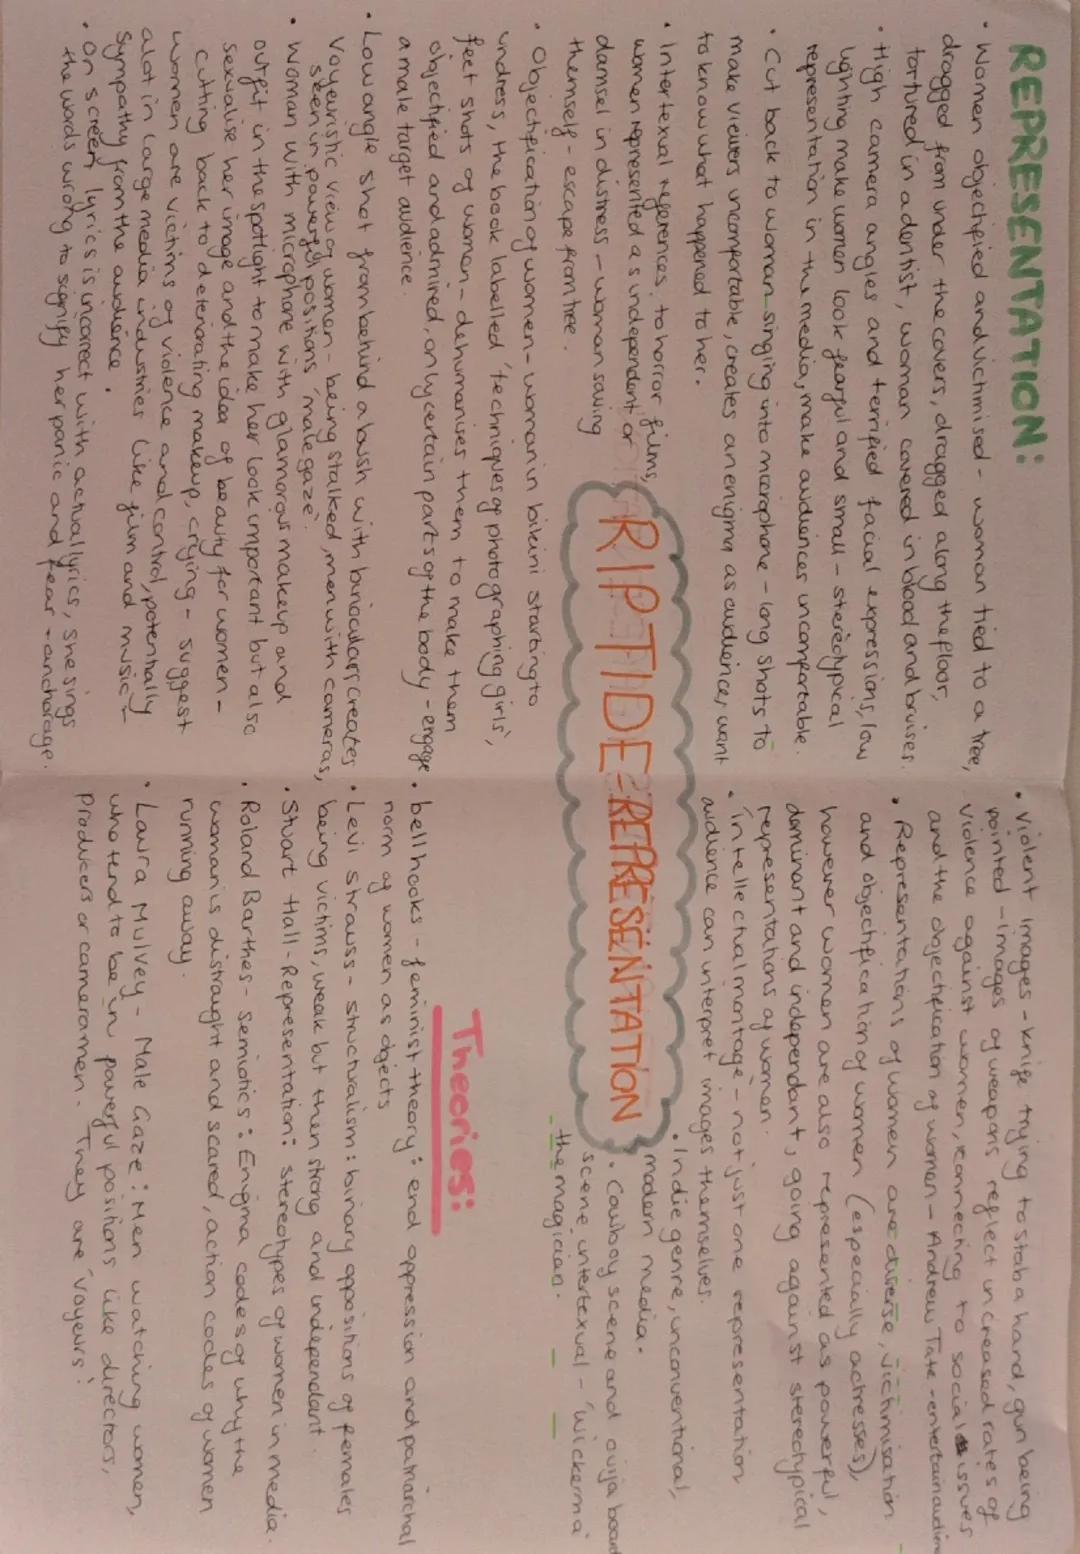 REPRESENTATION:
• Women objectified and victimised - woman tied to a tree,
dragged from under the covers, dragged along the floor,
tortured in a dentist, woman covered in blood and bruises.
• High camera angles and terrified facial expressions, low
lighting make women look fearful and small - stereotypical
representation in the media, make audiences uncomfortable.
• Cut back to woman singing into microphone - long shots to
make viewers uncomfortable, creates an enigma as audiences want
to know what happened to her.
• Intertexual references to horror films,
women represented as independent or
damsel in distress - woman saving
themself - escape from tree.
• Objectification of women - woman in bikini starting to
undress, the book labelled 'techniques of photographing girls',
feet shots of women - dehumanises them to make them
objectified and admired, only certain parts of the body - engage
a male target audience.
• Low angle shot from behind a bush with binoculars creates
voyeuristic view of women - being stalked, men with cameras,
seen in powerful positions 'male gaze'.
• Woman with microphone with glamorous makeup and
outfit in the spotlight to make her look important but also
sexualise her image and the idea of beauty for women -
cutting back to deteriorating makeup, crying - suggest
women are victims of violence and control, potentially
alot in large media industries like film and music -
sympathy from the audience.
• On screen lyrics is incorrect with actual lyrics, she sings
the words wrong to signify her panic and fear - anchorage.
RIPTIDE: REPRESENTATION
• Violent images - knife trying to stab a hand, gun being
pointed - images of weapons reflect increased rates of
violence against women, connecting to social issues
and the objectification of women - Andrew Tate - entertain audience
• Representations of women are diverse, victimisation
and objectification of women (especially actresses),
however women are also represented as powerful,
dominant and independant, going against stereotypical
representations of women.
• 'intellectual montage' - not just one representation,
audience can interpret images themselves.
• Indie genre, unconventional,
modern media.
• Cowboy scene and ouija board
scene intertexual - 'wickerma
the magician.
Theories:
• bell hooks - feminist theory: end oppression and patriarchal
norm of women as objects
• Levi Strauss - structuralism: binary oppositions of females
being victims, weak but then strong and independent.
• Stuart Hall - Representation: stereotypes of women in media.
• Roland Barthes - semiotics: Enigma codes of why the
woman is distraught and scared, action codes of women
running away.
• Laura Mulvey - Male Gaze: Men watching women,
who tend to be in powerful positions like directors,
producers or cameramen. They are 'voyeurs'.